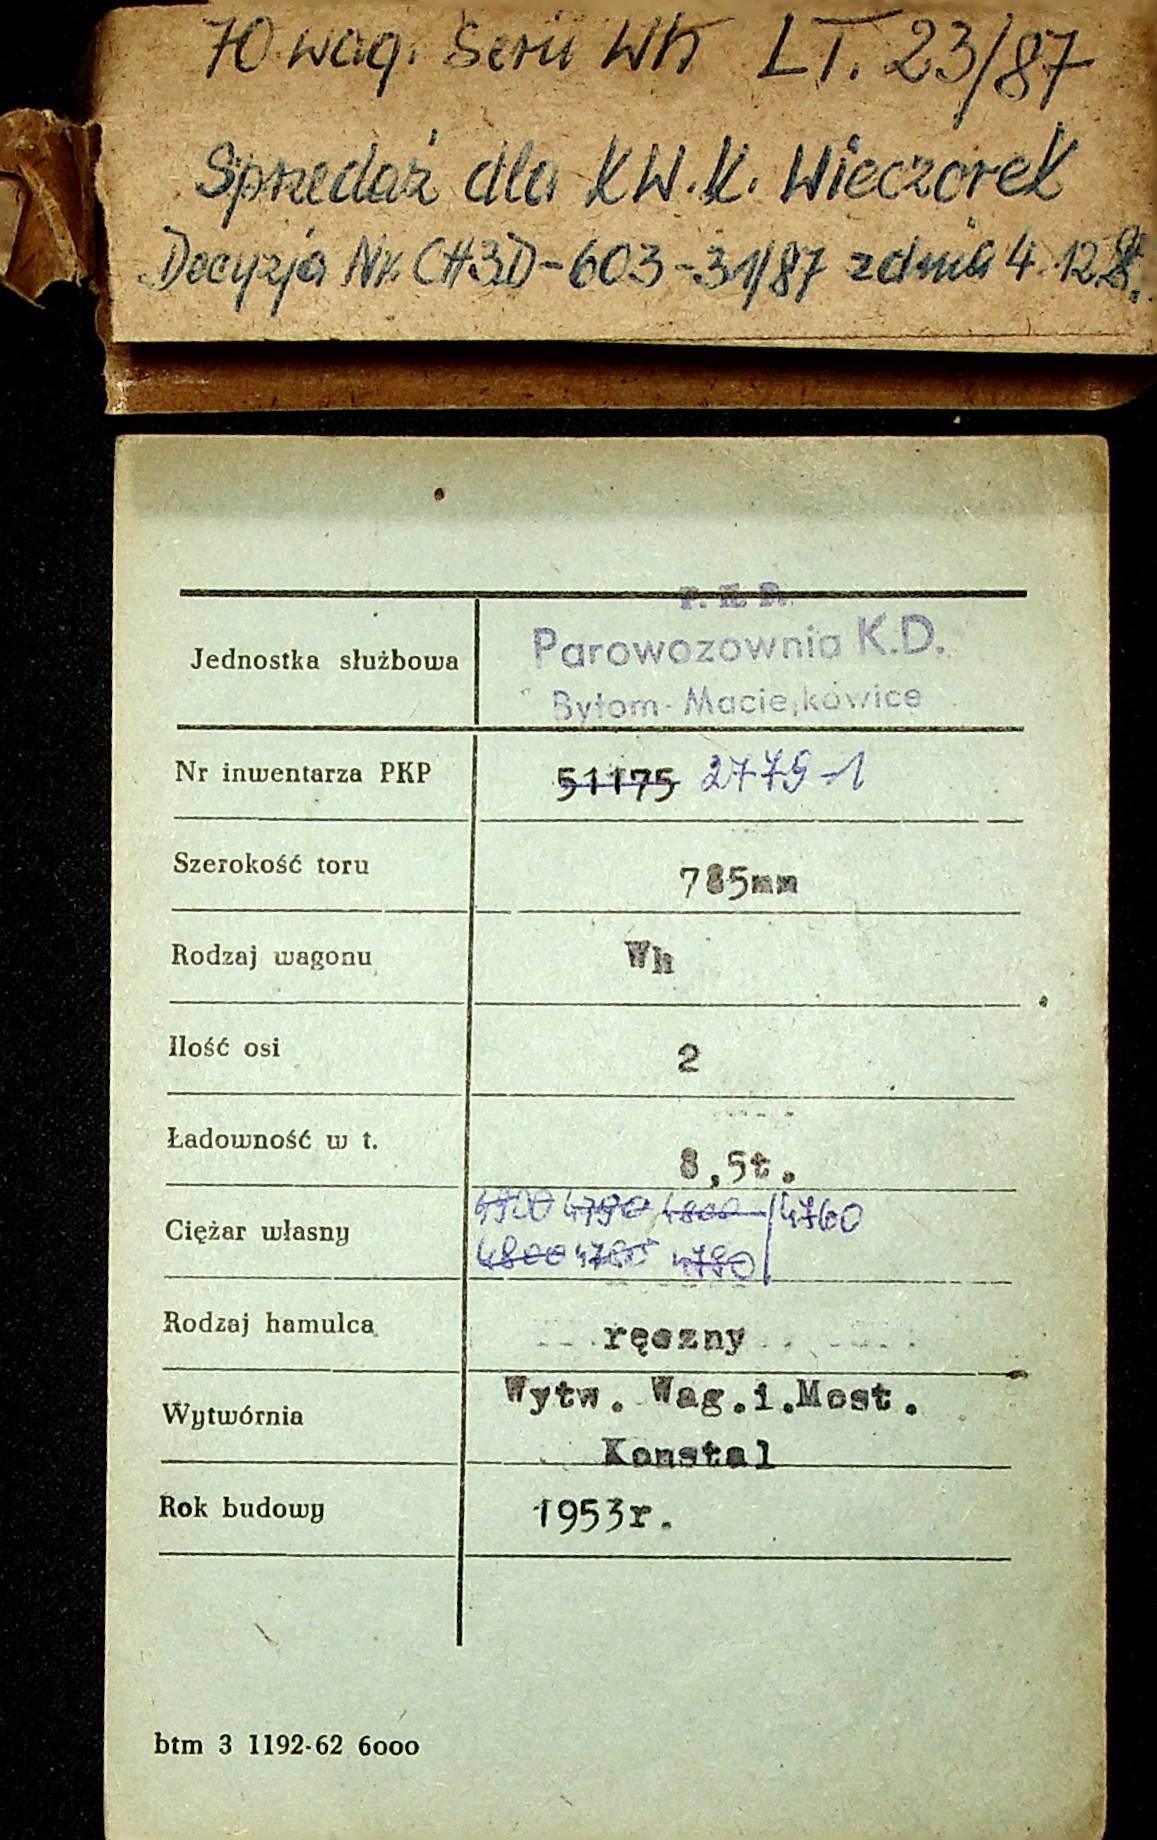 70 wag. Serii Wh LT. 23/87
Sprzedaż dla KW.K. Wieczorek
Decyzja Nr. CH3D-603-31/87 z dnia 4.12.
P. K. P.
Jednostka służbowa Parowozownia K.D.
Bytom-Maciejkowice
Nr inwentarza PKP 51175 2775-1
Szerokość toru 785mm
Rodzaj wagonu Wh
Ilość osi 2
Ładowność w t. 8,5t.
4920 4790 4800 4760
Ciężar własny
4800 4780 4780
Rodzaj hamulca ręczny
Wytwórnia Wytw. Wag.i.Most.
Konstal
Rok budowy 1953r.
btm 3 1192-62 6000